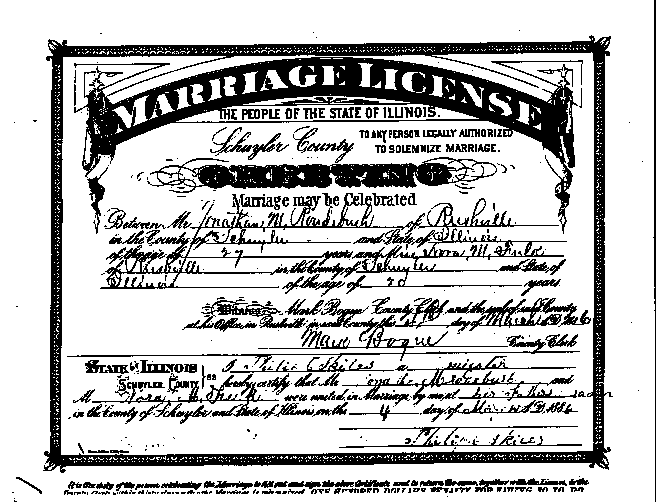 MARRIAGE LICENSE
THE PEOPLE OF THE STATE OF ILLINOIS.
Schuyler County
TO ANY PERSON LEGALLY AUTHORIZED
TO SOLEMNIZE MARRIAGE.
GREETING
Marriage may be Celebrated
Between Mr Jonathan M. Roudebush of Rushville
in the County of Schuyler and State of Illinois
of the age of 27 years and Miss Nora M.
of Rushville in the County of Schuyler and State of
Illinois of the age of 20 years
Witness Mark Bogue County Clerk and the seal of said County
at his Office in Rushville in said County this day of March A.D. 1886
Mark Bogue County Clerk
STATE OF ILLINOIS
SCHUYLER COUNTY
ss
I Philip Skiles a minister
hereby certify that Mr and
M Nora M. were united in Marriage by me at her Fathers
in the County of Schuyler and State of Illinois, on the 4 day of A.D. 1886
Philip Skiles
It is the duty of the person celebrating the Marriage to fill out and sign the above Certificate and to return the same, together with the License, to the
ONE HUNDRED DOLLARS PENALTY FOR FAILING TO DO